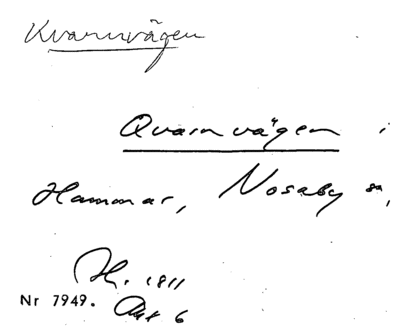 Kvarnvägen
Qvarnvägen i
Hammar, Nosaby sn,
1811
Nr 7949. Akt 6